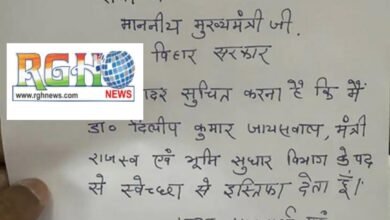 माननीय मुख्यमंत्री जी.
बिहार सरकार
RGH
NEWS
www.rghnews.com
सादर सुचित करना है कि मैं
डा० दिलीप कुमार जायसवाल, मंत्री
राजस्व एवं भूमि सुधार विभाग के पद
से स्वेच्छा से इस्तिफा देता हूँ।